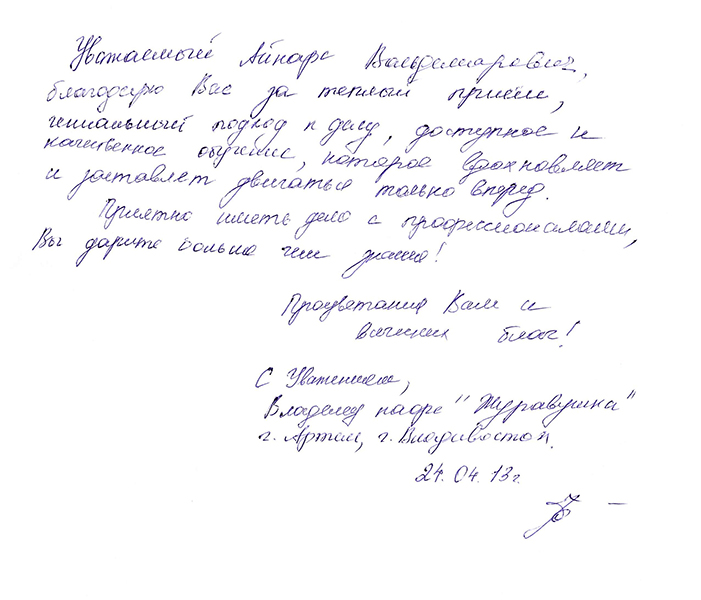 Уважаемый Айнарс Вальдемарович,
благодарю Вас за теплый прием,
гениальный подход к делу, доступное и
качественное обучение, которое вдохновляет
и заставляет двигаться только вперед.
Приятно иметь дело с профессионалами,
Вы дарите больше чем знания!
Процветания Вам и
всяческих благ!
С Уважением,
Владелец кафе "Журавушка"
г. Артем, г. Владивосток.
24.04.13г.